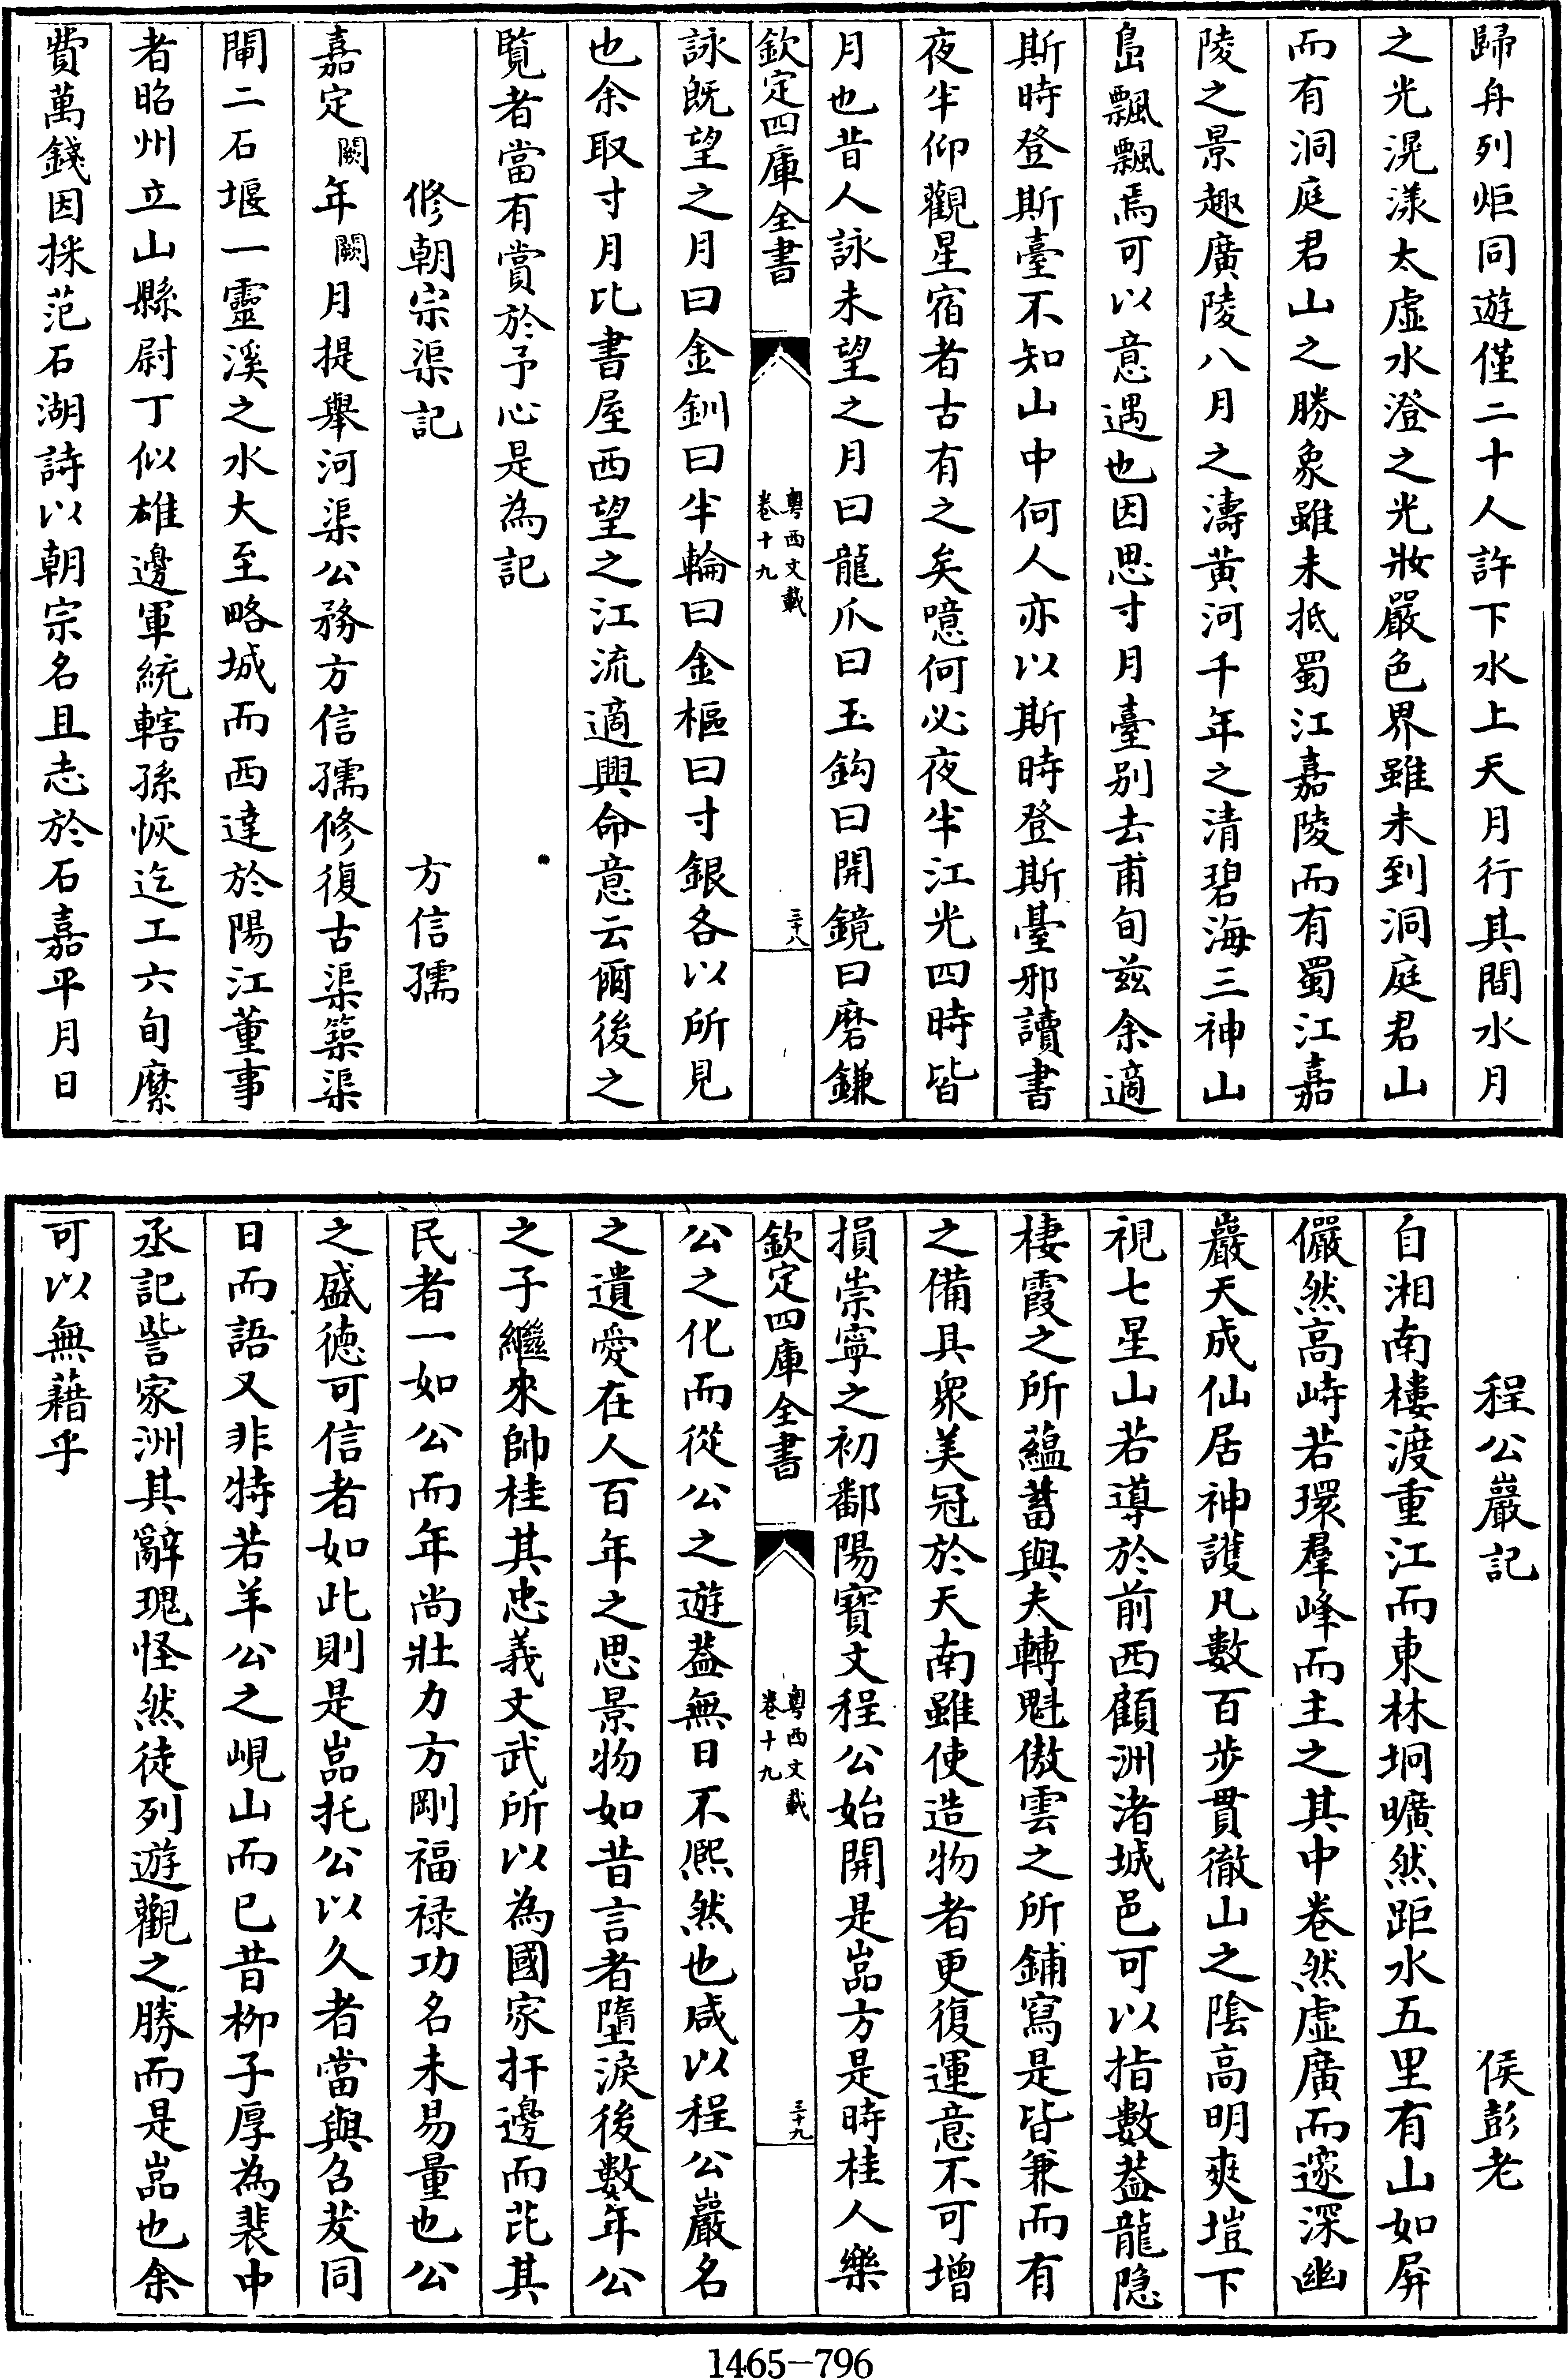 歸舟列炬同遊僅二十人許下水上天月行其間水月
之光滉漾太虛水澄之光妝嚴色界雖未到洞庭君山
而有洞庭君山之勝象雖未抵蜀江嘉陵而有蜀江嘉
陵之景趣廣陵八月之濤黃河千年之清碧海三神山
島飄飄焉可以意遇也因思寸月臺别去甫旬兹余適
斯時登斯臺不知山中何人亦以斯時登斯臺邪讀書
夜半仰觀星宿者古有之矣噫何必夜半江光四時皆
月也昔人詠未望之月曰龍爪曰玉鈎曰開鏡曰磨鎌
欽定四庫全書
粵西文載
卷十九
三十八
詠既望之月曰金釧曰半輪曰金樞曰寸銀各以所見
也余取寸月比書屋西望之江流適興命意云爾後之
覧者當有賞於予心是為記
修朝宗渠記
方信孺
嘉定闕年闕月提舉河渠公務方信孺修復古渠築渠
閘二石堰一靈溪之水大至略城而西達於陽江董事
者昭州立山縣尉丁似雄邊軍統轄孫恢迄工六旬縻
費萬錢因採范石湖詩以朝宗名且志於石嘉平月日
程公巖記
侯彭老
自湘南樓渡重江而東林坰曠然距水五里有山如屏
儼然高峙若環羣峰而主之其中卷然虛廣而邃深幽
巖天成仙居神護凡數百步貫徹山之陰高明爽塏下
視七星山若導於前西顧洲渚城邑可以指數葢龍隠
棲霞之所蘊蓄與夫轉魁傲雲之所鋪寫是皆兼而有
之備具衆美冠於天南雖使造物者更復運意不可增
損崇寧之初鄱陽寳文程公始開是嵓方是時桂人樂
欽定四庫全書
粵西文載
卷十九
三十九
公之化而從公之遊葢無日不熈然也咸以程公巖名
之遺愛在人百年之思景物如昔言者墮淚後數年公
之子繼來帥桂其忠義文武所以為國家扞邊而芘其
民者一如公而年尚壯力方剛福禄功名未易量也公
之盛徳可信者如此則是嵓托公以久者當與召茇同
日而語又非特若羊公之峴山而已昔栁子厚為裴中
丞記訾家洲其辭瑰怪然徒列遊觀之勝而是嵓也余
可以無藉乎
1465-796